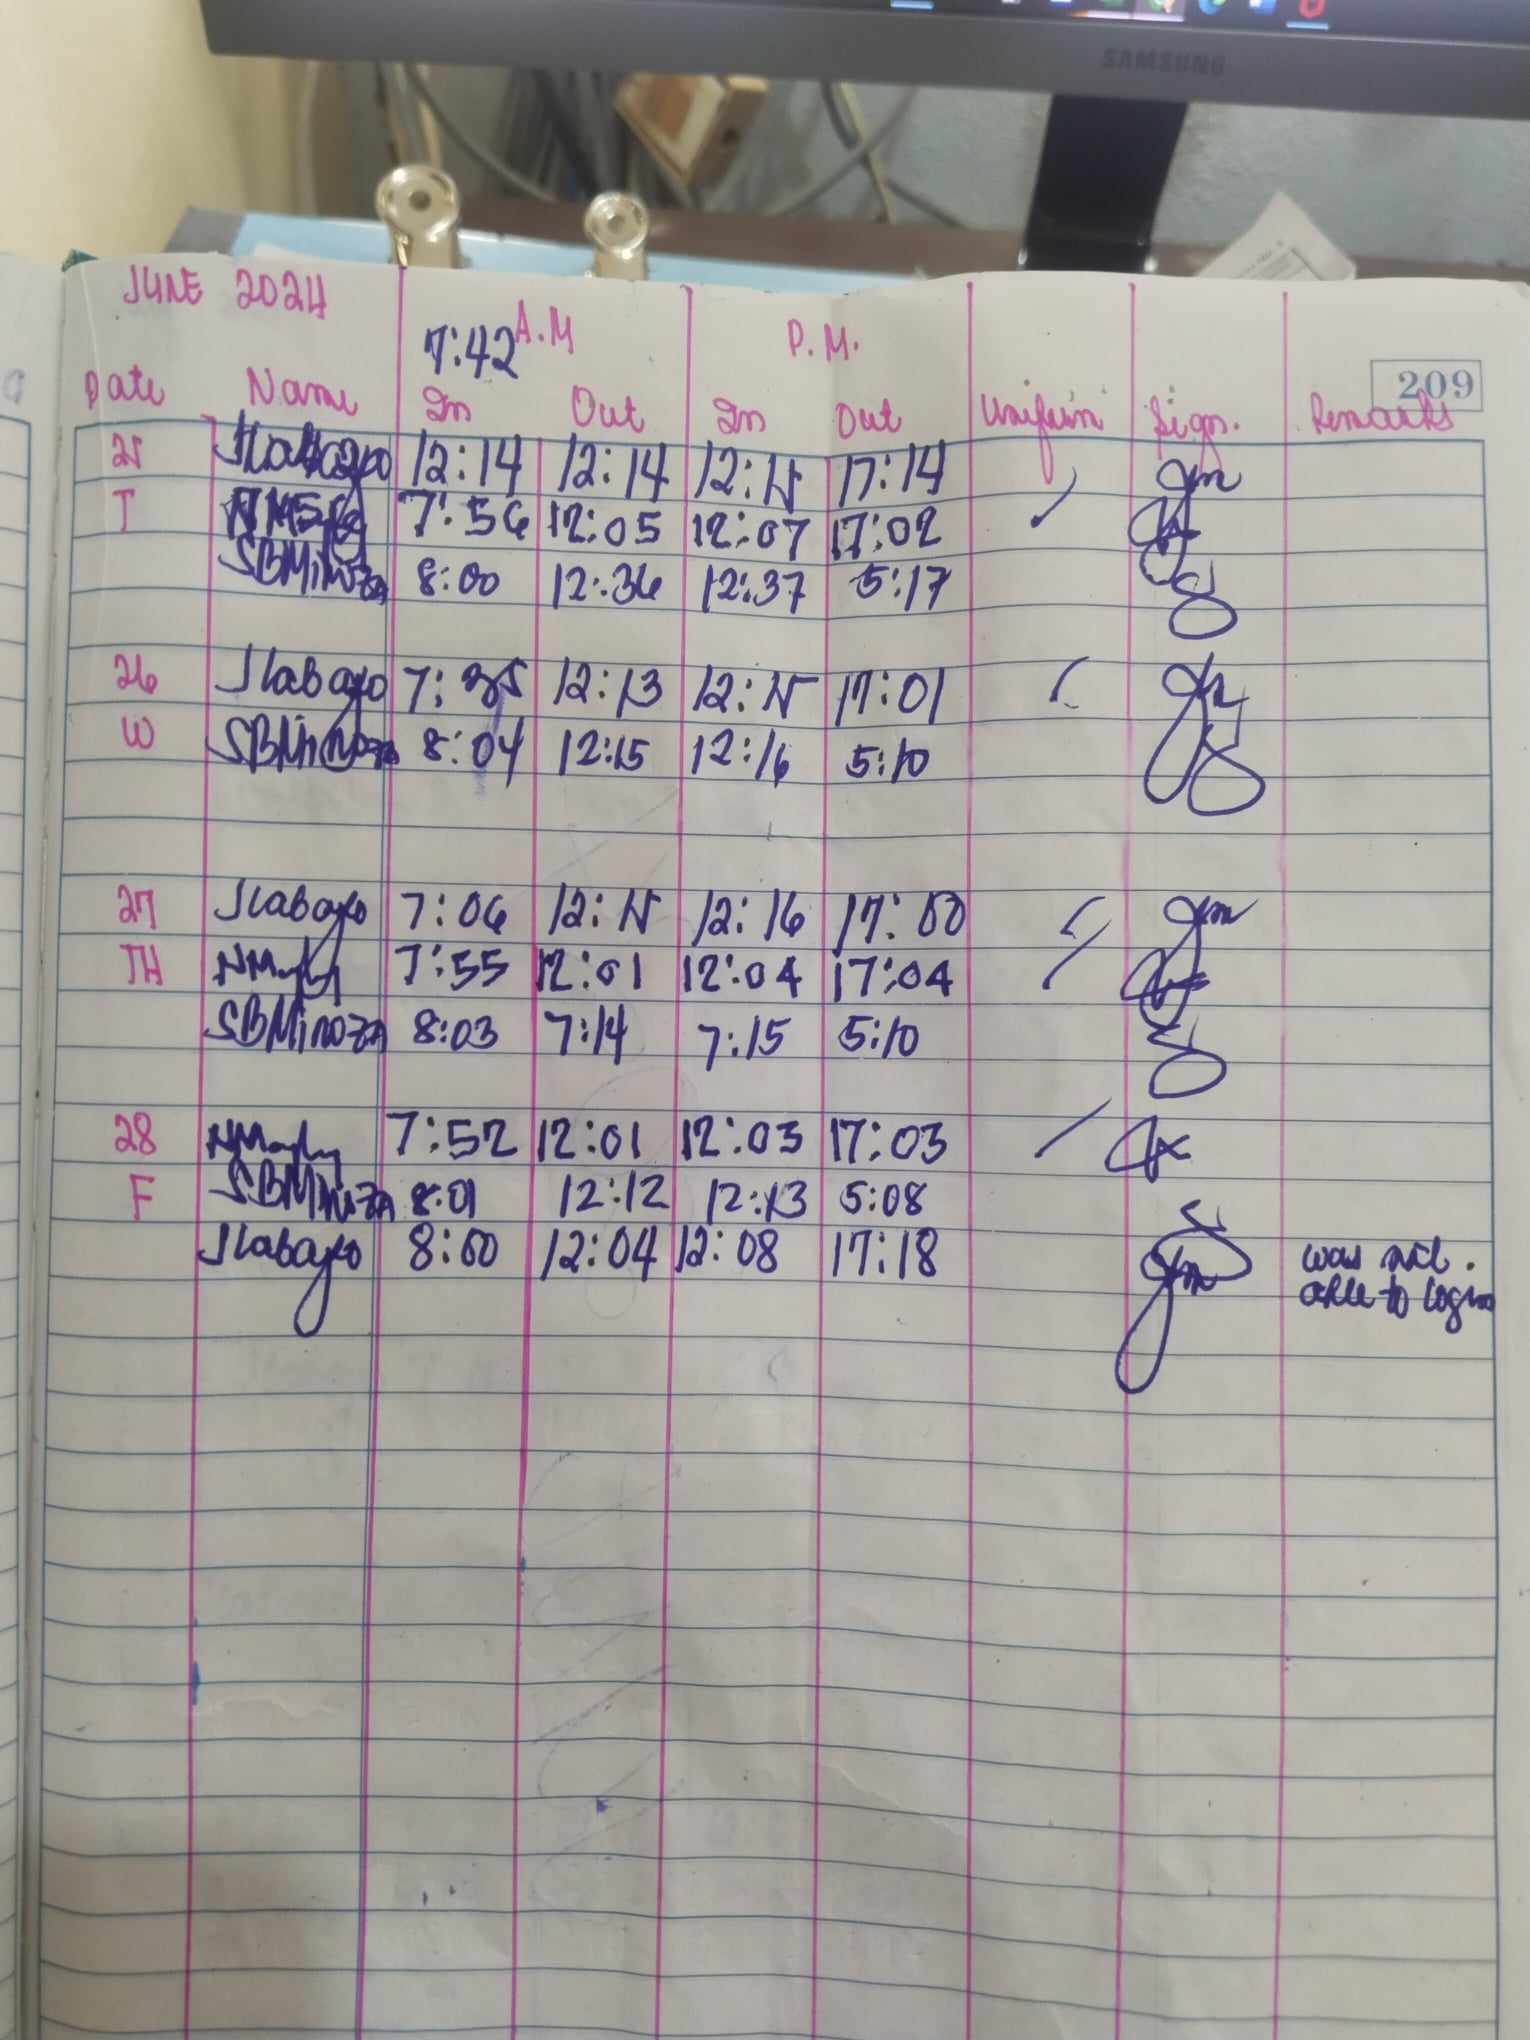 SAMSUNG
JUNE 2024
7:42 A.M P.M.
209
Date Name In Out In Out Uniform Sign. Remarks
25 Jlabayo 12:14 12:14 12:15 17:14
T 7:56 12:05 12:07 17:02
SBMinoza 8:00 12:36 12:37 5:17
26 Jlabayo 7:35 12:13 12:15 17:01
W SBMinoza 8:04 12:15 12:16 5:10
27 Jlabayo 7:06 12:15 12:16 17:00
TH 7:55 12:01 12:04 17:04
SBMinoza 8:03 7:14 7:15 5:10
28 7:52 12:01 12:03 17:03
F SBMinoza 8:01 12:12 12:13 5:08
Jlabayo 8:00 12:04 12:08 17:18 was not
able to login